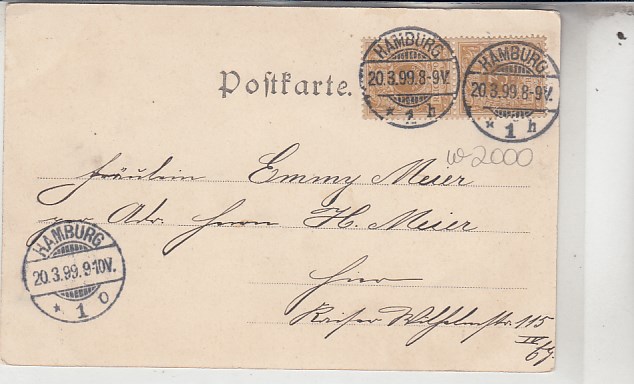 HAMBURG
20.3.99.8-9V.
* 1 h
HAMBURG
20.3.99.8-9V.
* 1 h
Postkarte.
w-2000
Fräulein Emmy Meier
per Adr. Herrn H. Meier
Hier
Kaiser Wilhelmstr. 115
HAMBURG
20.3.99.9-10V.
* 1 o